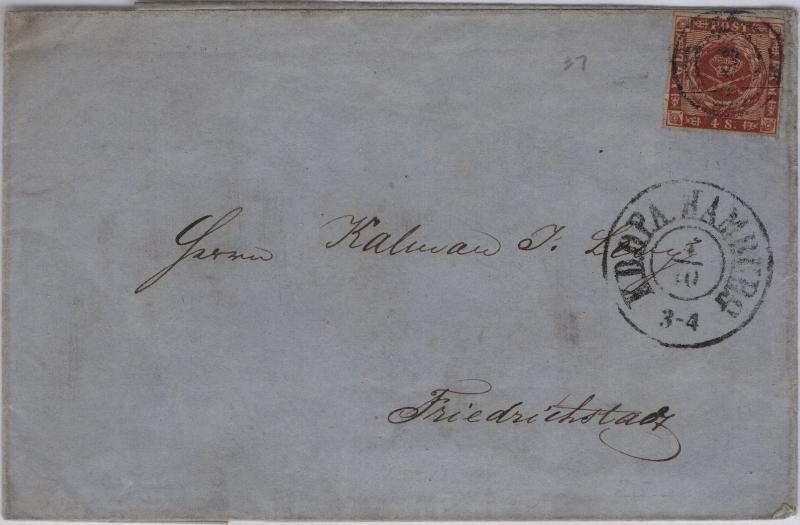 37
POST
4 S.
K.D.O.P.A. HAMBURG
10
3-4
Herrn Kalman J. Levy
Friedrichstadt